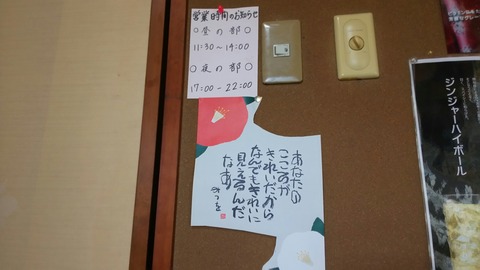 営業時間のお知らせ
○昼の部○
11:30～14:00
○夜の部○
17:00-22:00
あなたの
こころが
きれいだから
なんでもきれいに
見えるんだ
なあ
みつを
ジンジャーハイボール